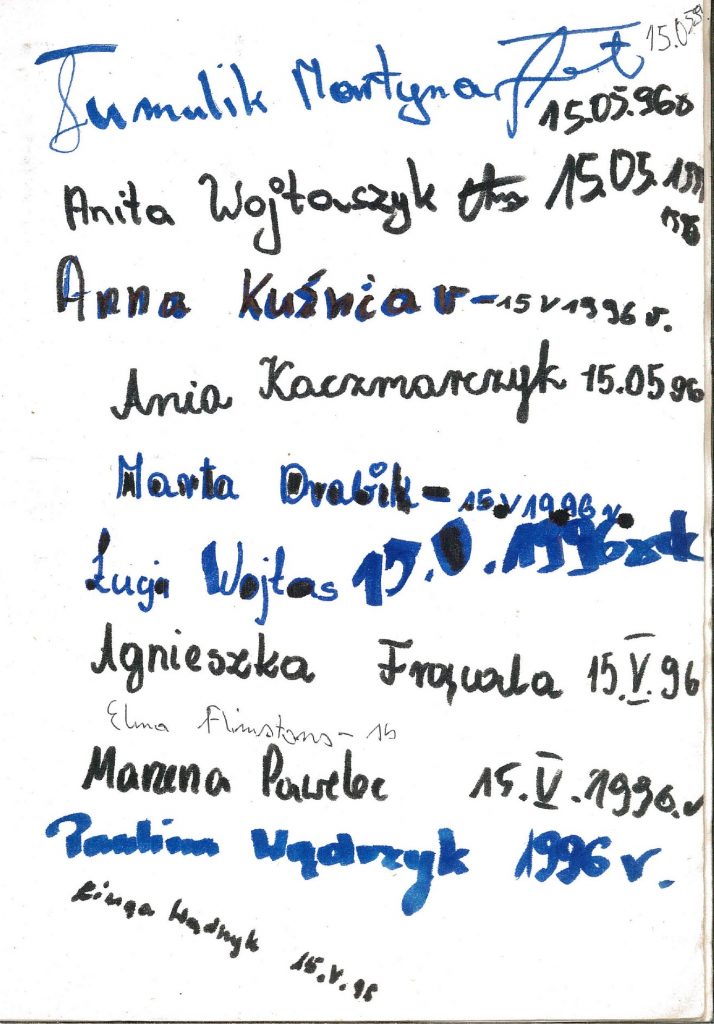 15.05.
Tumalik Martyna
15.05.96r
Anita Wojtaszyk 15.05.
1996
Anna Kuśniar - 15 V 1996 r.
Ania Kaczmarczyk 15.05 96
Marta Drabik - 15.V 1996 r.
Łucja Wojtas 15.V.1996 rok
Agnieszka Frąwala 15.V.96
Elma Flinstons - 15
Marzena Pawelec 15.V.1996.r
Paulina Wądrzyk 1996 r.
Kinga Wądrzyk 15.V.96